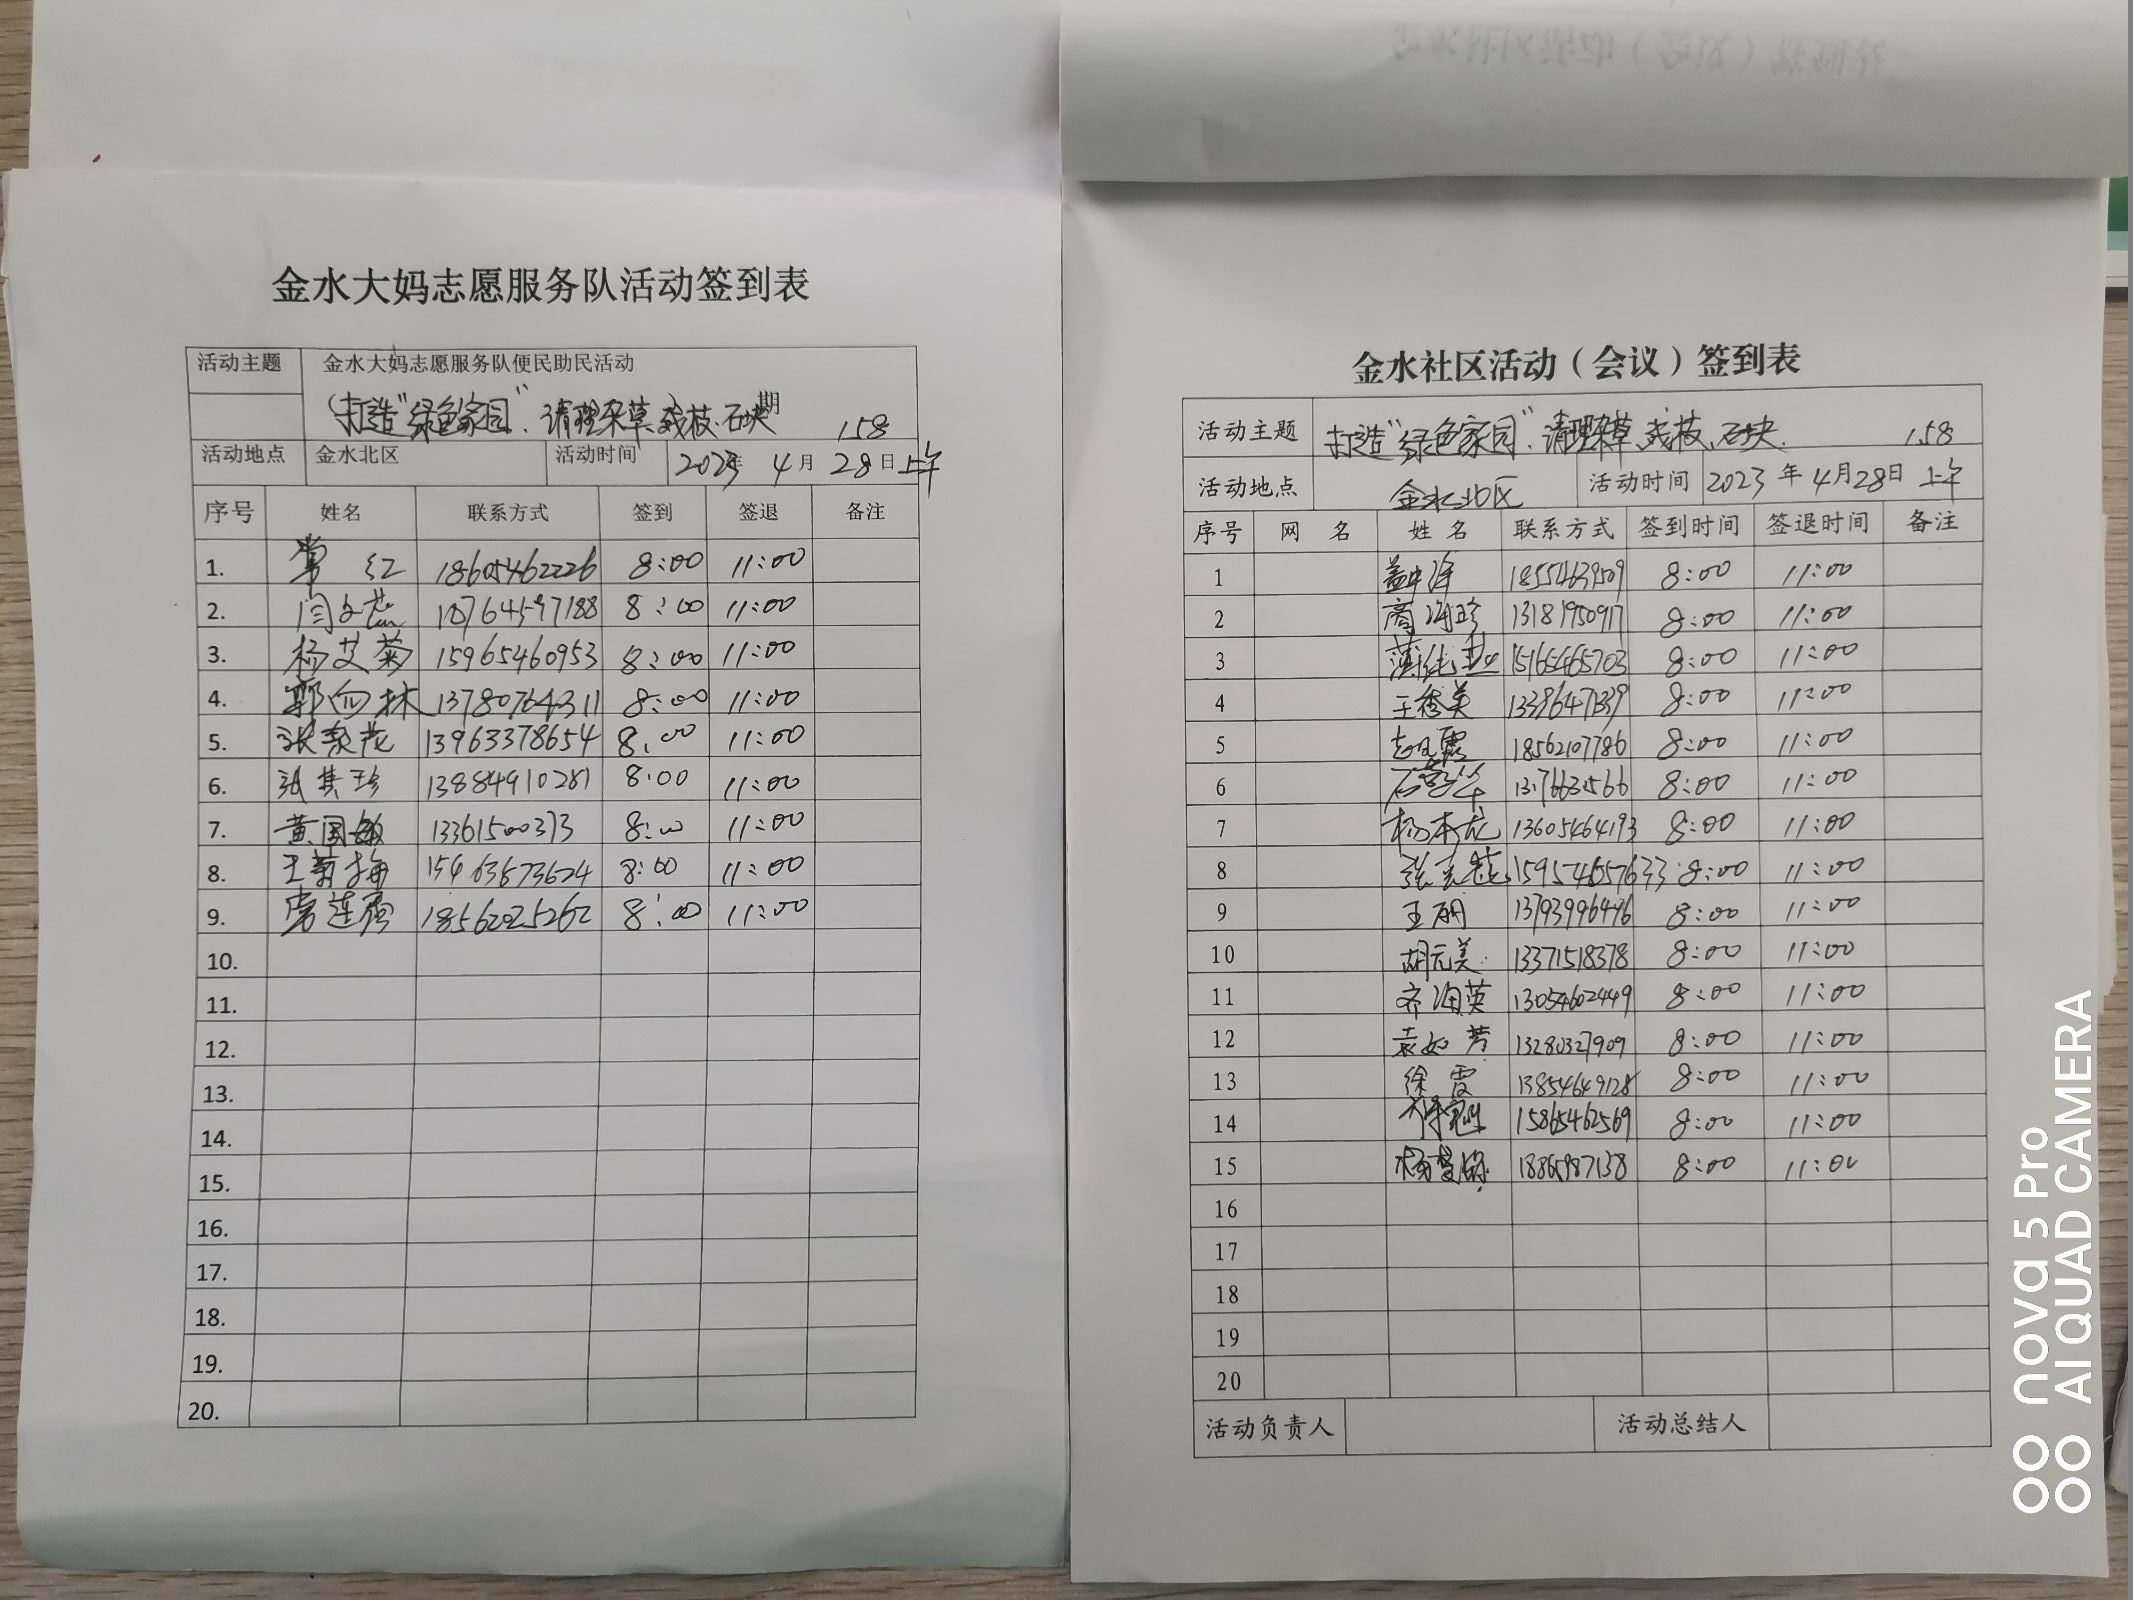 金水大妈志愿服务队活动签到表
活动主题 金水大妈志愿服务队便民助民活动
(打造"绿色家园"、清理杂草、残枝、石块 期 158
活动地点 金水北区 活动时间 2023年 4月 28日上午
序号 姓名 联系方式 签到 签退 备注
1. 常红 18605462226 8:00 11:00
2. 18764597188 8:00 11:00
3. 杨艾菊 15965460953 8:00 11:00
4. 郭向林 13780764311 8:00 11:00
5. 张 13963378654 8:00 11:00
6. 张其珍 13884910281 8:00 11:00
7. 黄国敏 13361500373 8:00 11:00
8. 王菊梅 8:00 11:00
9. 18562025262 8:00 11:00
10.
11.
12.
13.
14.
15.
16.
17.
18.
19.
20.
金水社区活动（会议）签到表
活动主题 打造"绿色家园"、清理杂草、残枝、石块. 158
活动地点 金水北区 活动时间 2023年4月28日 上午
序号 网名 姓名 联系方式 签到时间 签退时间 备注
1 18554639509 8:00 11:00
2 商海珍 13181950917 8:00 11:00
3 15165465703 8:00 11:00
4 王秀英 13396471339 8:00 11:00
5 18562107786 8:00 11:00
6 8:00 11:00
7 杨本龙 13605464193 8:00 11:00
8 张 15954657633 8:00 11:00
9 王丽 13793996496 8:00 11:00
10 胡元美 13371518378 8:00 11:00
11 齐海英 13054602449 8:00 11:00
12 袁如芳 13280327909 8:00 11:00
13 徐霞 13854649128 8:00 11:00
14 15865462569 8:00 11:00
15 8:00 11:00
16
17
18
19
20
活动负责人 活动总结人
nova 5 Pro
AI QUAD CAMERA